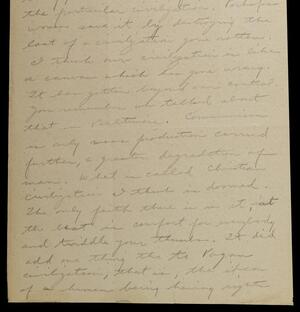 the particular civilization. Perhaps
women save it by destroying the
last of a civilization gone rotten.
I think our civilization is like
a canvas which has gone wrong.
It has gotten beyond our control.
You remember we talked about
that in Baltimore. Communism
is only mass production carried
further, a greater degradation of
man. What is called Christian
Civilization I think is doomed.
The only faith there is in it, at
the best is comfort for everybody
and twiddle your thumbs. It did
add one thing to the Pagan
civilization, that is, the idea
of a human being having